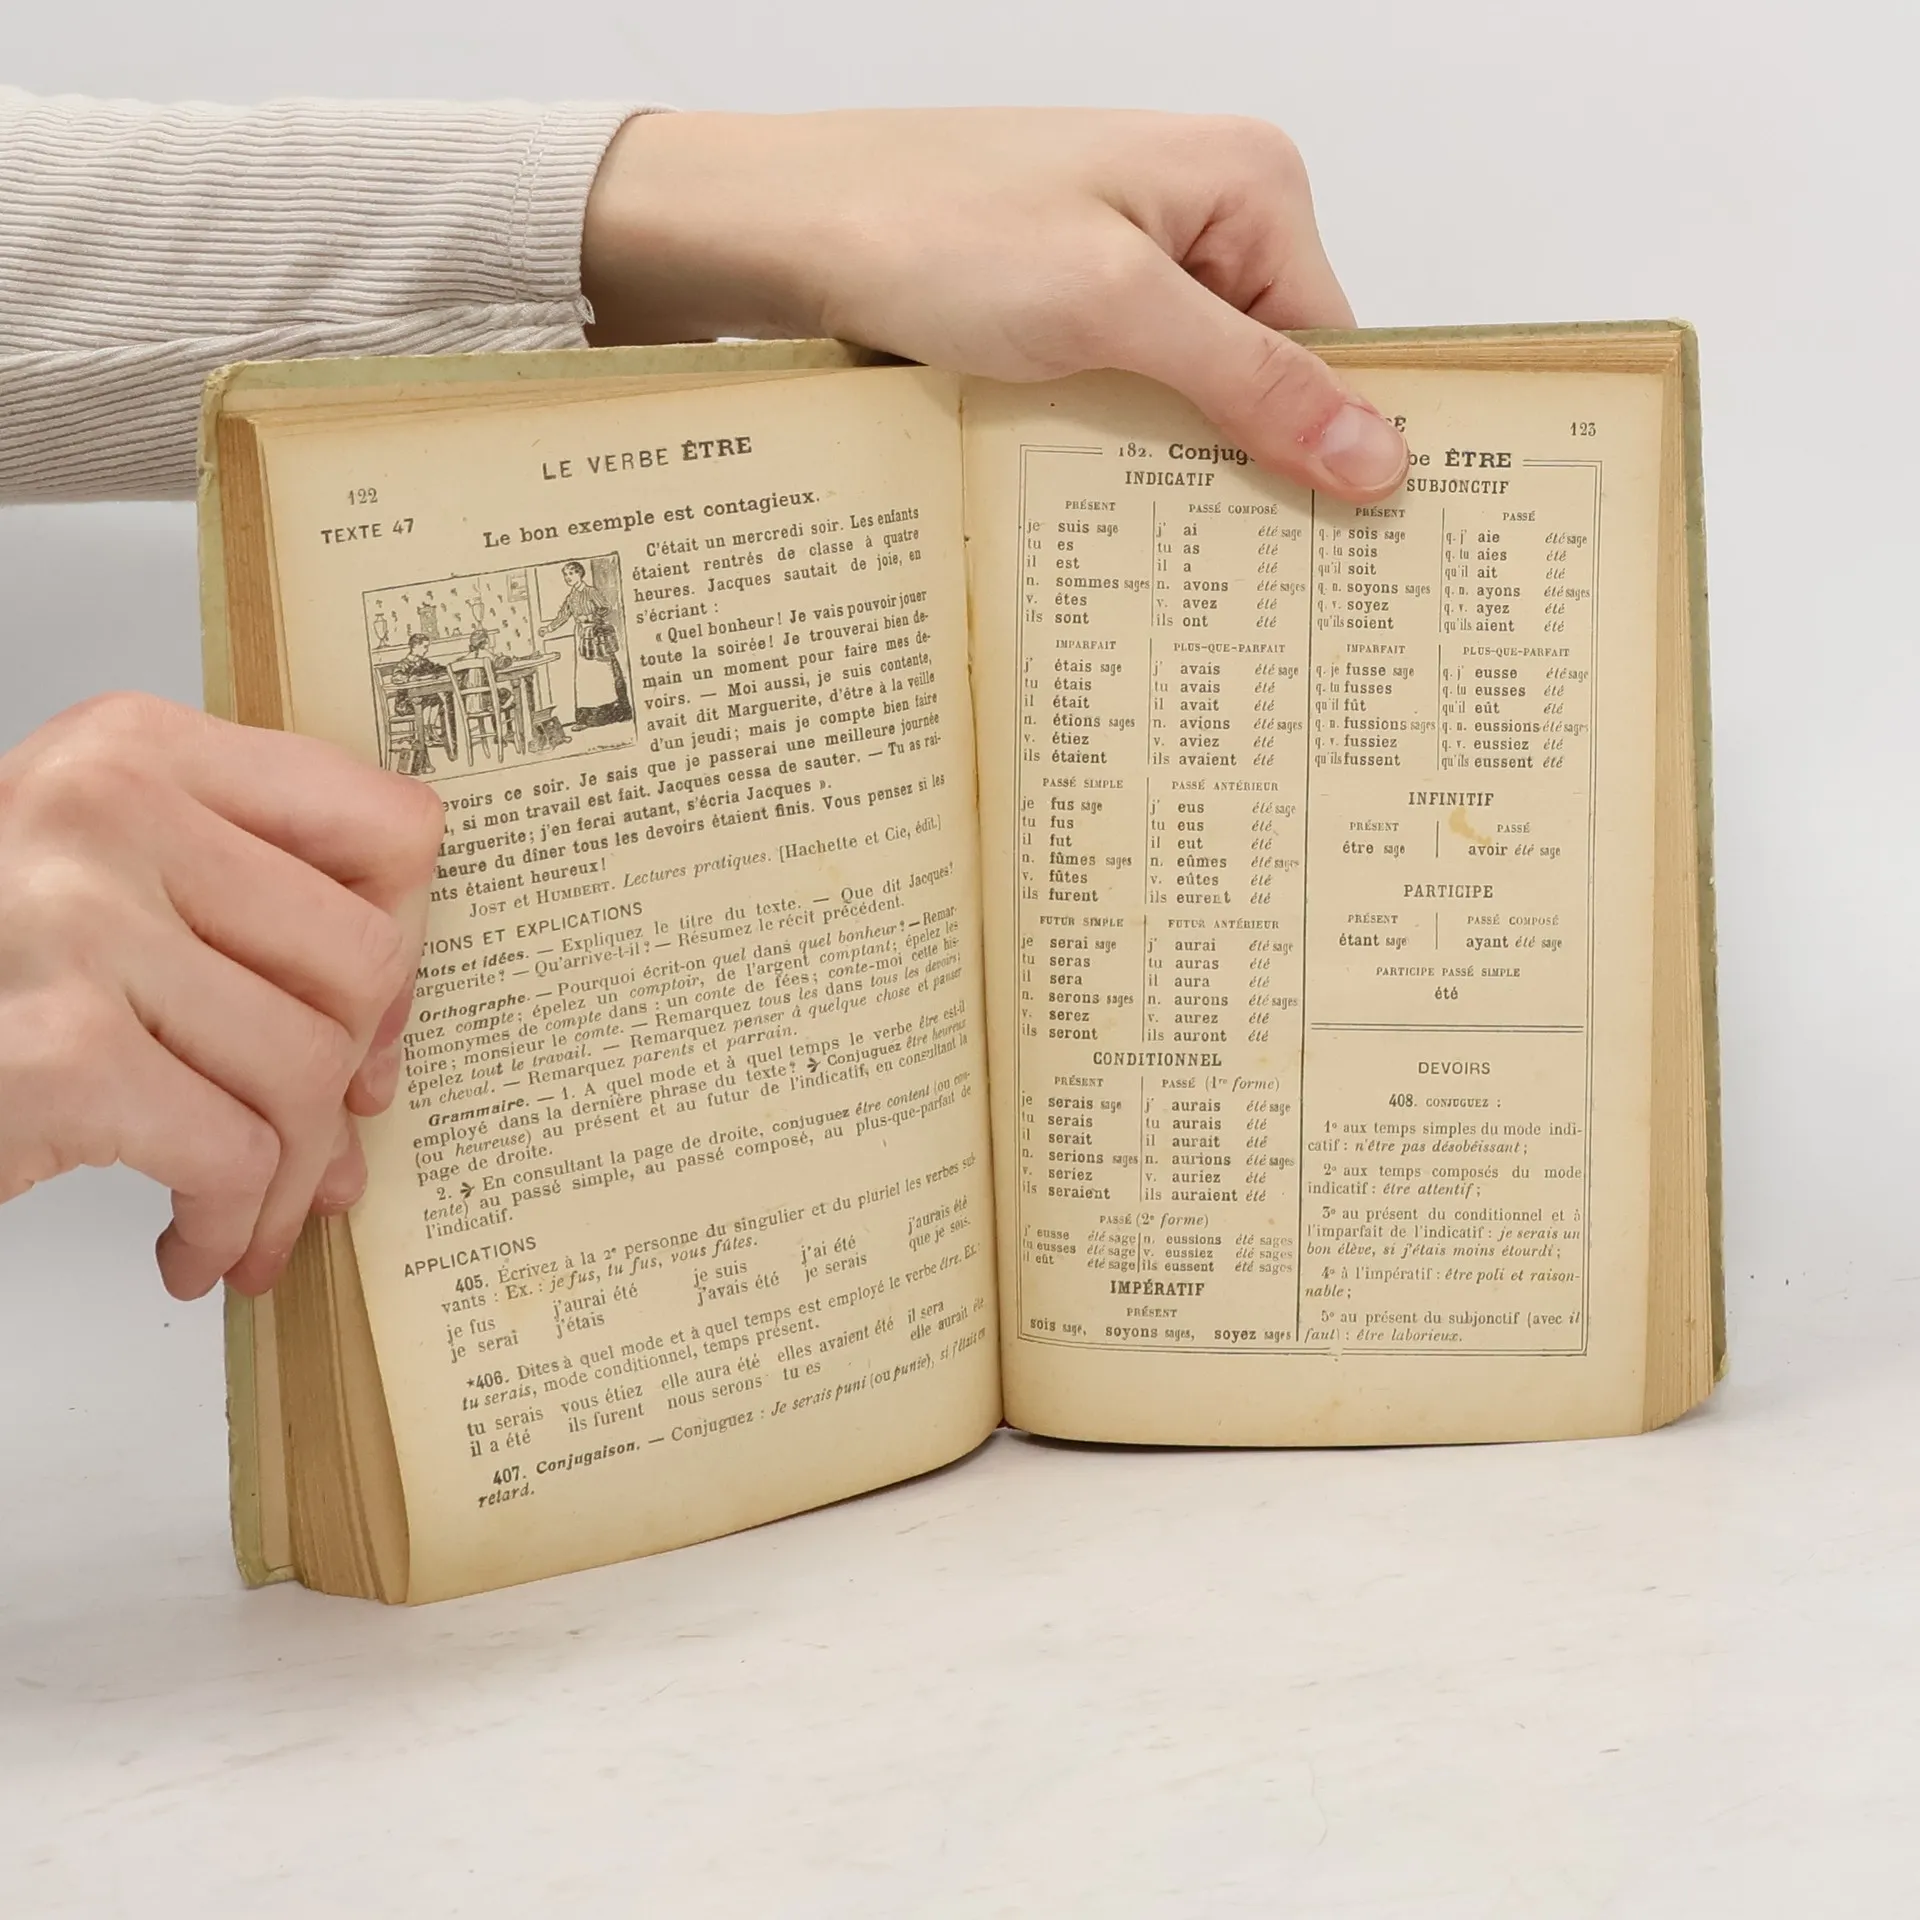 122
LE VERBE ÊTRE
TEXTE 47
Le bon exemple est contagieux.
C'était un mercredi soir. Les enfants
étaient rentrés de classe à quatre
heures. Jacques sautait de joie, en
s'écriant :
« Quel bonheur! Je vais pouvoir jouer
toute la soirée! Je trouverai bien de-
main un moment pour faire mes de-
voirs. — Moi aussi, je suis contente,
avait dit Marguerite, d'être à la veille
d'un jeudi; mais je compte bien faire
evoirs ce soir. Je sais que je passerai une meilleure journée
, si mon travail est fait. Jacques cessa de sauter. — Tu as rai-
Marguerite; j'en ferai autant, s'écria Jacques ».
'heure du dîner tous les devoirs étaient finis. Vous pensez si les
nts étaient heureux!
JOST et HUMBERT. Lectures pratiques. [Hachette et Cie, édit.]
TIONS ET EXPLICATIONS
Mots et idées. — Expliquez le titre du texte. — Que dit Jacques?
arguerite? — Qu'arrive-t-il? — Résumez le récit précédent.
Orthographe. — Pourquoi écrit-on quel dans quel bonheur? — Remar-
quez compte; épelez un comptoir, de l'argent comptant; épelez les
homonymes de compte dans : un conte de fées; conte-moi cette his-
toire; monsieur le comte. — Remarquez tous les dans tous les devoirs;
épelez tout le travail. — Remarquez penser à quelque chose et panser
un cheval. — Remarquez parents et parrain.
Grammaire. — 1. A quel mode et à quel temps le verbe être est-il
employé dans la dernière phrase du texte? Conjuguez être heureux
(ou heureuse) au présent et au futur de l'indicatif, en consultant la
page de droite.
2. En consultant la page de droite, conjuguez être content (ou con-
tente) au passé simple, au passé composé, au plus-que-parfait de
l'indicatif.
APPLICATIONS
405. Écrivez à la 2e personne du singulier et du pluriel les verbes sui-
vants : Ex. : je fus, tu fus, vous fûtes.
je fus j'aurai été je suis j'ai été j'aurais été
je serai j'étais j'avais été je serais que je sois.
*406. Dites à quel mode et à quel temps est employé le verbe être. Ex. :
tu serais, mode conditionnel, temps présent.
tu serais vous étiez elle aura été elles avaient été il sera
il a été ils furent nous serons tu es elle aurait été
407. Conjugaison. — Conjuguez : Je serais puni (ou punie), si j'étais en
retard.
123
182. Conjug be ÊTRE
INDICATIF
PRÉSENT PASSÉ COMPOSÉ
je suis sage j' ai été sage
tu es tu as été
il est il a été
n. sommes sages n. avons été sages
v. êtes v. avez été
ils sont ils ont été
IMPARFAIT PLUS-QUE-PARFAIT
j' étais sage j' avais été sage
tu étais tu avais été
il était il avait été
n. étions sages n. avions été sages
v. étiez v. aviez été
ils étaient ils avaient été
PASSÉ SIMPLE PASSÉ ANTÉRIEUR
je fus sage j' eus été sage
tu fus tu eus été
il fut il eut été
n. fûmes sages n. eûmes été sages
v. fûtes v. eûtes été
ils furent ils eurent été
FUTUR SIMPLE FUTUR ANTÉRIEUR
je serai sage j' aurai été sage
tu seras tu auras été
il sera il aura été
n. serons sages n. aurons été sages
v. serez v. aurez été
ils seront ils auront été
CONDITIONNEL
PRÉSENT PASSÉ (1re forme)
je serais sage j' aurais été sage
tu serais tu aurais été
il serait il aurait été
n. serions sages n. aurions été sages
v. seriez v. auriez été
ils seraient ils auraient été
PASSÉ (2e forme)
j' eusse été sage n. eussions été sages
tu eusses été sage v. eussiez été sages
il eût été sage ils eussent été sages
IMPÉRATIF
PRÉSENT
sois sage, soyons sages, soyez sages
SUBJONCTIF
PRÉSENT PASSÉ
q. je sois sage q. j' aie été sage
q. tu sois q. tu aies été
qu'il soit qu'il ait été
q. n. soyons sages q. n. ayons été sages
q. v. soyez q. v. ayez été
qu'ils soient qu'ils aient été
IMPARFAIT PLUS-QUE-PARFAIT
q. je fusse sage q. j' eusse été sage
q. tu fusses q. tu eusses été
qu'il fût qu'il eût été
q. n. fussions sages q. n. eussions été sages
q. v. fussiez q. v. eussiez été
qu'ils fussent qu'ils eussent été
INFINITIF
PRÉSENT PASSÉ
être sage avoir été sage
PARTICIPE
PRÉSENT PASSÉ COMPOSÉ
étant sage ayant été sage
PARTICIPE PASSÉ SIMPLE
été
DEVOIRS
408. CONJUGUEZ :
1º aux temps simples du mode indi-
catif : n'être pas désobéissant;
2º aux temps composés du mode
indicatif : être attentif;
3º au présent du conditionnel et à
l'imparfait de l'indicatif : je serais un
bon élève, si j'étais moins étourdi;
4º à l'impératif : être poli et raison-
nable;
5º au présent du subjonctif (avec il
faut) : être laborieux.